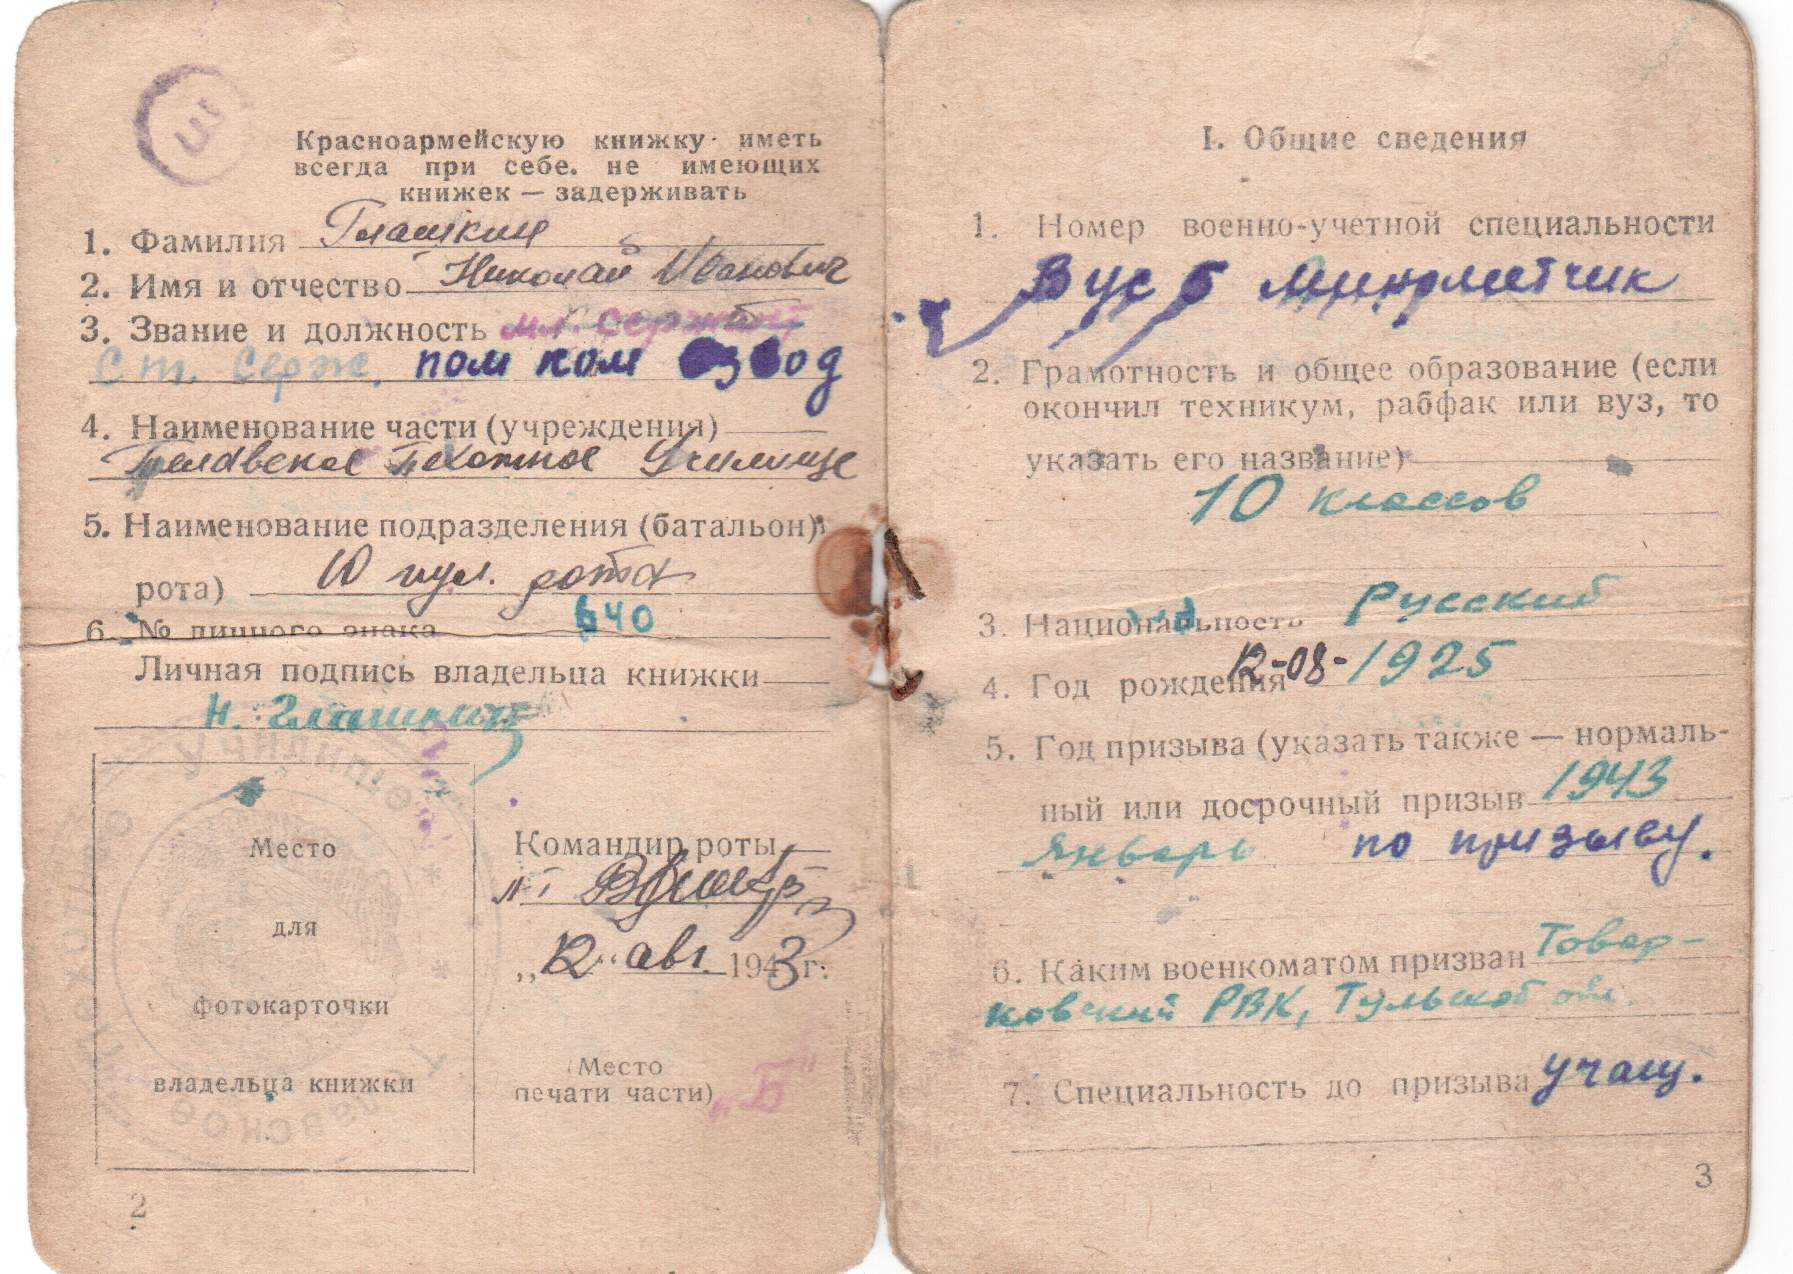 Красноармейскую книжку иметь
всегда при себе. не имеющих
книжек — задерживать
1. Фамилия Глашкин
2. Имя и отчество Николай Иванович
3. Звание и должность мл. сержант
Ст. Серж. пом ком взвод
4. Наименование части (учреждения)
Пехотное Училище
5. Наименование подразделения (батальон)
рота) 10 пул. рота
6. № личного знака 640
Личная подпись владельца книжки
Н. Глашкин
Место
для
фотокарточки
владельца книжки
Командир роты
„12“ авг. 1943 г.
(Место
печати части) „Б“
2
I. Общие сведения
1. Номер военно-учетной специальности
Вус 5 Минометчик
2. Грамотность и общее образование (если
окончил техникум, рабфак или вуз, то
указать его название)
10 классов
3. Национальность Русский
4. Год рождения 12-08-1925
5. Год призыва (указать также — нормаль-
ный или досрочный призыв 1943
Январь по призыву.
6. Каким военкоматом призван Товар-
ковский РВК, Тульской обл.
7. Специальность до призыва учащ.
3